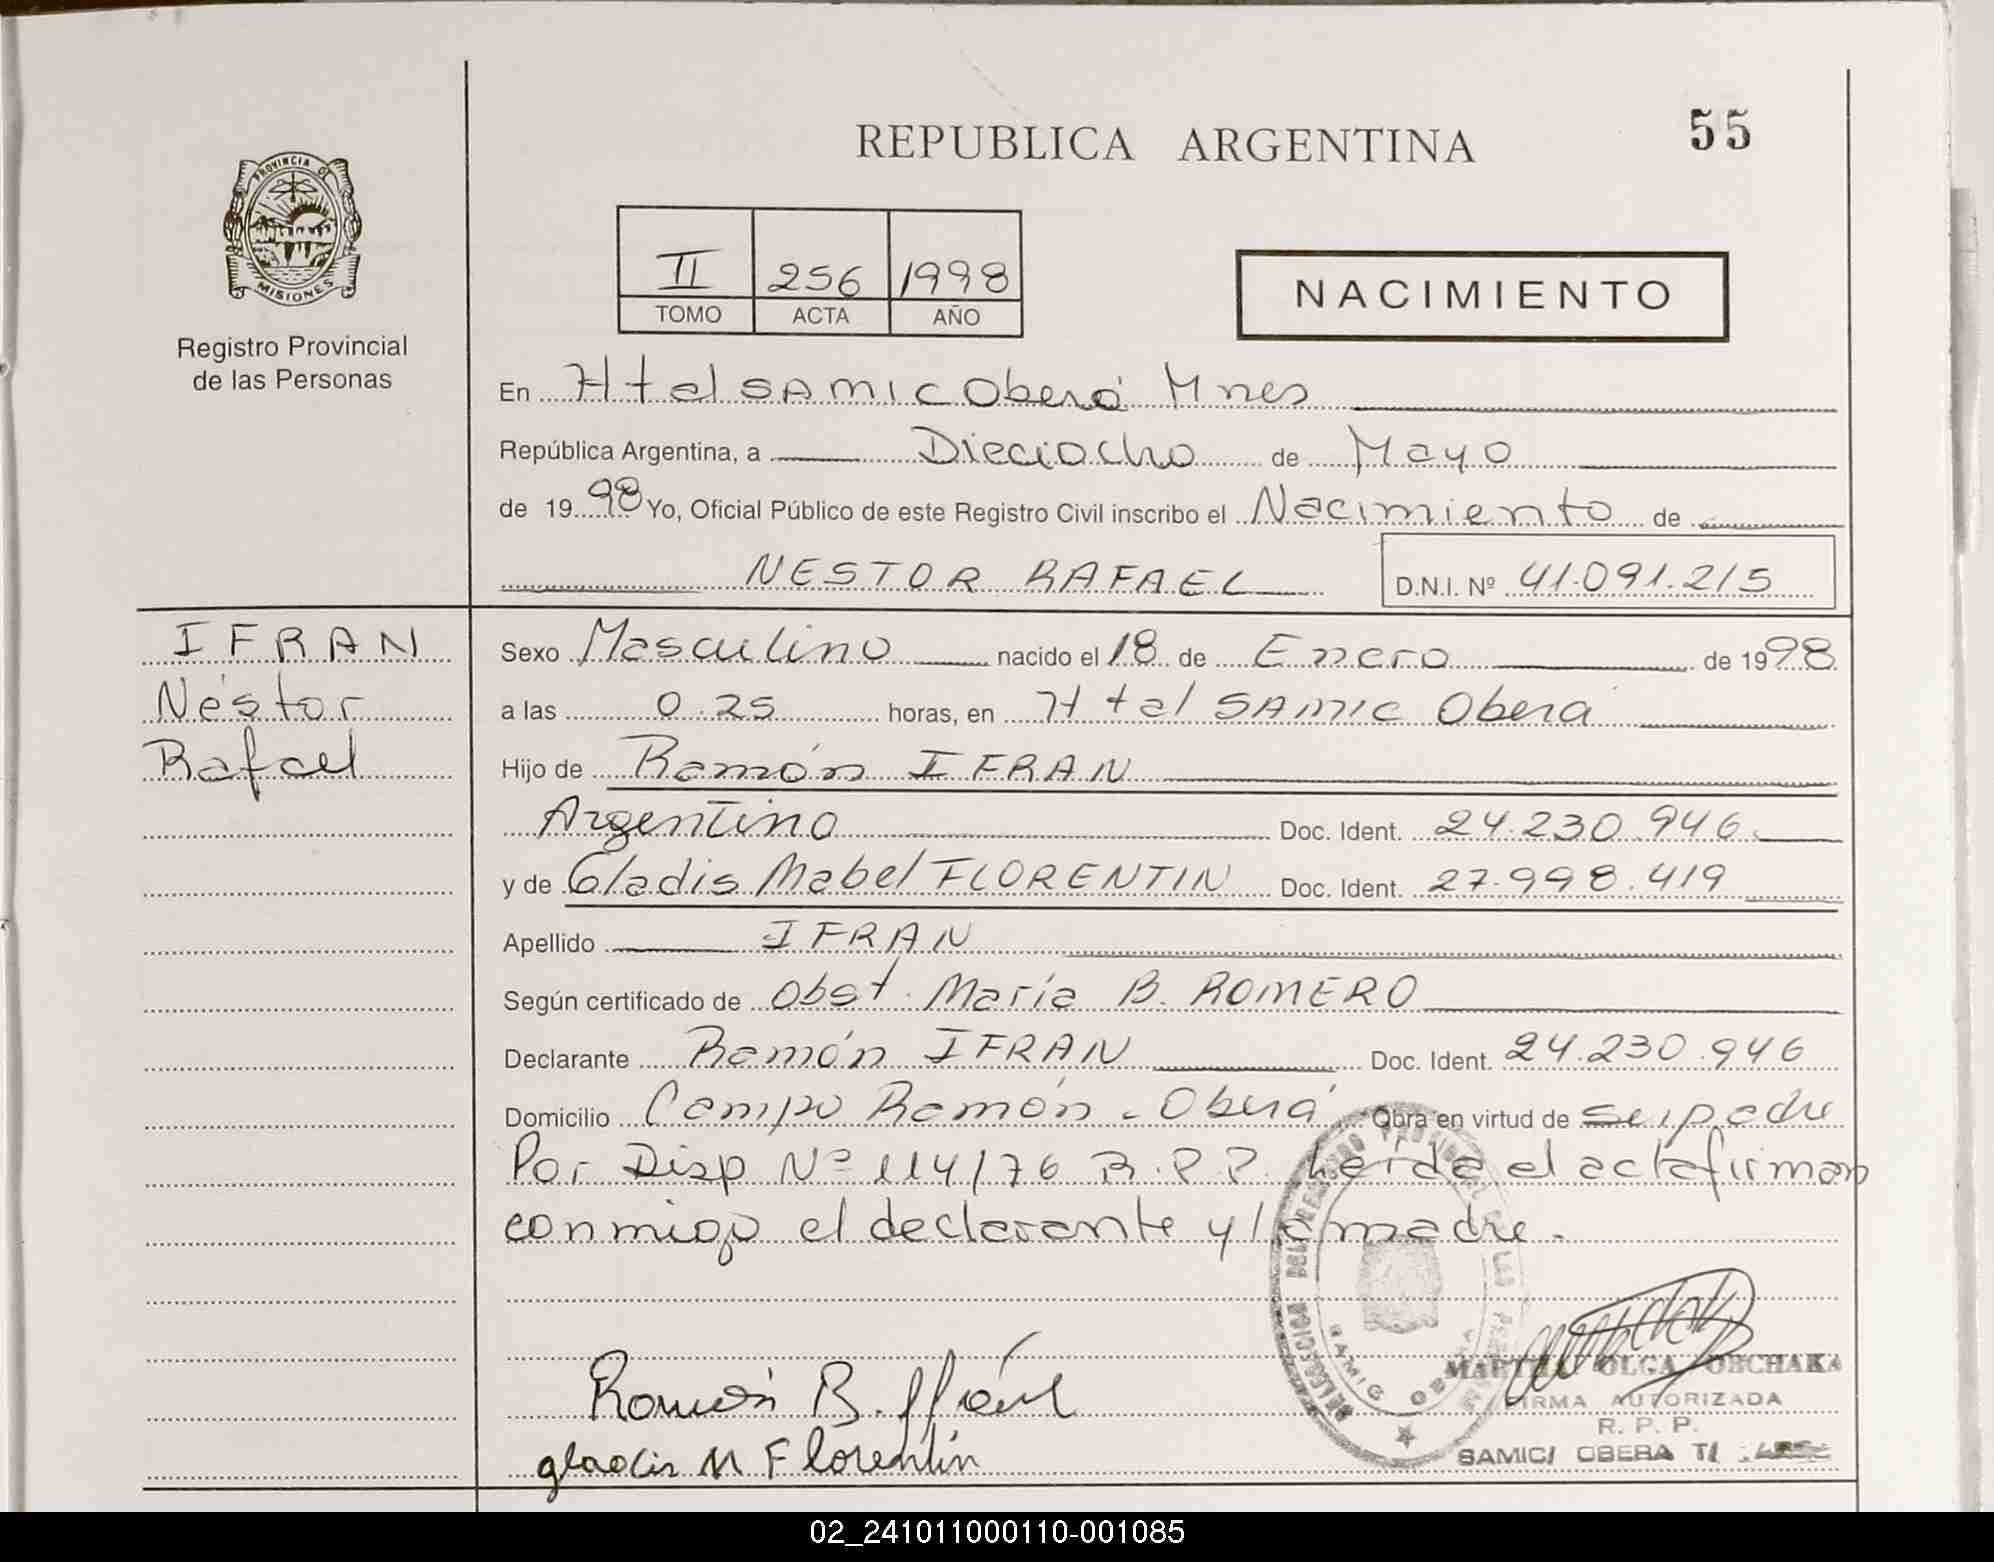 REPUBLICA ARGENTINA
55
PROVINCIA DE
MISIONES
Registro Provincial
de las Personas
II 256 1998
TOMO ACTA AÑO
NACIMIENTO
En Htal SAMIC Oberá Mnes
República Argentina, a Dieciocho de Mayo
de 1998 Yo, Oficial Público de este Registro Civil inscribo el Nacimiento de
NESTOR RAFAEL D.N.I. Nº 41.091.215
IFRAN
Néstor
Rafael
Sexo Masculino nacido el 18 de Enero de 1998
a las 0.25 horas, en Htal SAMIC Oberá
Hijo de Ramón IFRAN
Argentino Doc. Ident. 24.230.946
y de Gladis Mabel FLORENTIN Doc. Ident. 27.998.419
Apellido IFRAN
Según certificado de Obst. María B. ROMERO
Declarante Ramón IFRAN Doc. Ident. 24.230.946
Domicilio Campo Ramón - Oberá Obra en virtud de ser padre
Por Disp Nº 114/76 R.P.P. Leída el acta firman
conmigo el declarante y la madre.
DELEGACION DEL REGISTRO PROVINCIAL DE LAS PERSONAS
SAMIC OBERA
Ramón B. Ifrán
gladis M Florentin
MARTHA OLGA OBCHAKA
FIRMA AUTORIZADA
R. P. P.
SAMIC/ OBERA
02_241011000110-001085